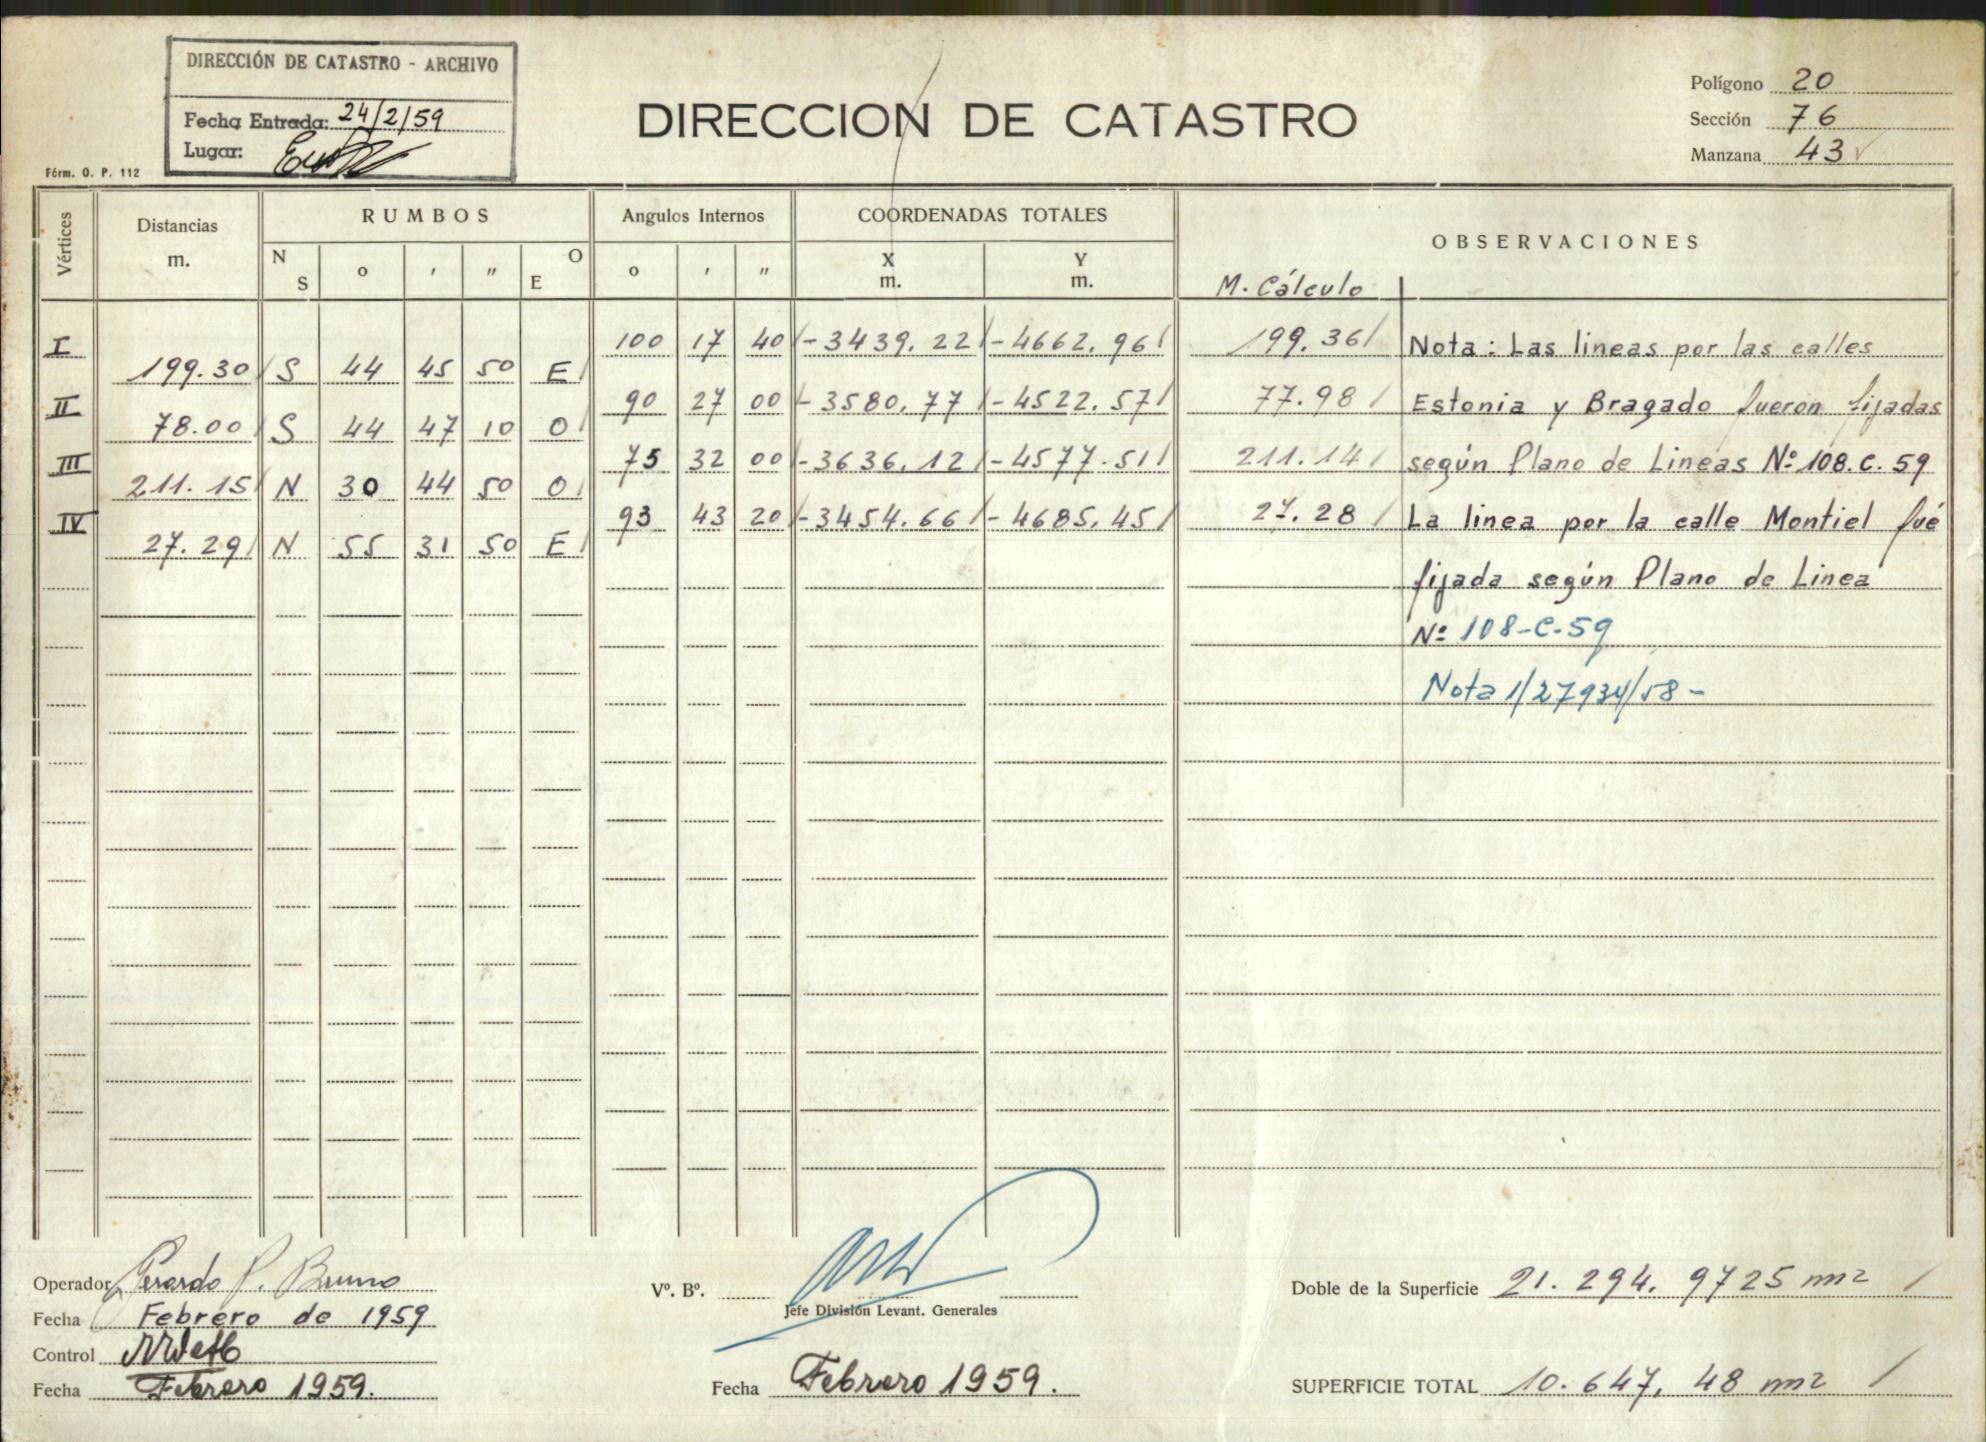 DIRECCIÓN DE CATASTRO - ARCHIVO
Fecha Entrada: 24/2/59
Lugar:
Fórm. O. P. 112
DIRECCION DE CATASTRO
Polígono 20
Sección 76
Manzana 43
Vértices Distancias m. RUMBOS Angulos Internos COORDENADAS TOTALES OBSERVACIONES
N S o ' " O E o ' " X m. Y m. M. Cálculo
I 100 17 40 -3439.22 -4662.96 199.36 Nota: Las lineas por las calles
199.30 S 44 45 50 E
II 90 27 00 -3580.77 -4522.57 77.98 Estonia y Bragado fueron fijadas
78.00 S 44 47 10 O
III 75 32 00 -3636.12 -4577.51 211.14 según Plano de Lineas Nº 108.C.59
211.15 N 30 44 50 O
IV 93 43 20 -3454.66 -4685.45 27.28 La linea por la calle Montiel fué
27.29 N 55 31 50 E
fijada según Plano de Linea
Nº 108-C-59
Nota 1/27934/58-
Operador Gerardo P. Bruno
Fecha Febrero de 1959
Control
Fecha Febrero 1959.
Vº. Bº.
Jefe División Levant. Generales
Fecha Febrero 1959.
Doble de la Superficie 21.294,9725 m2
SUPERFICIE TOTAL 10.647,48 m2